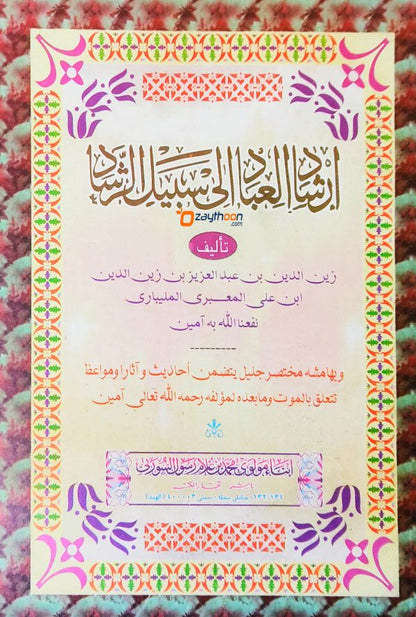 ارشاد العباد الى سبيل الرشاد
zaythoon
.com
تأليف
زين الدين بن عبد العزيز بن زين الدين
ابن على المعبرى المليبارى
نفعنا الله به آمين
وبهامشه مختصر جليل يتضمن أحاديث وآثارا ومواعظ
تتعلق بالموت وما بعده لمؤلفه رحمه الله تعالى آمين
ابناء مولوى محمد بن غلام رسول السورتى